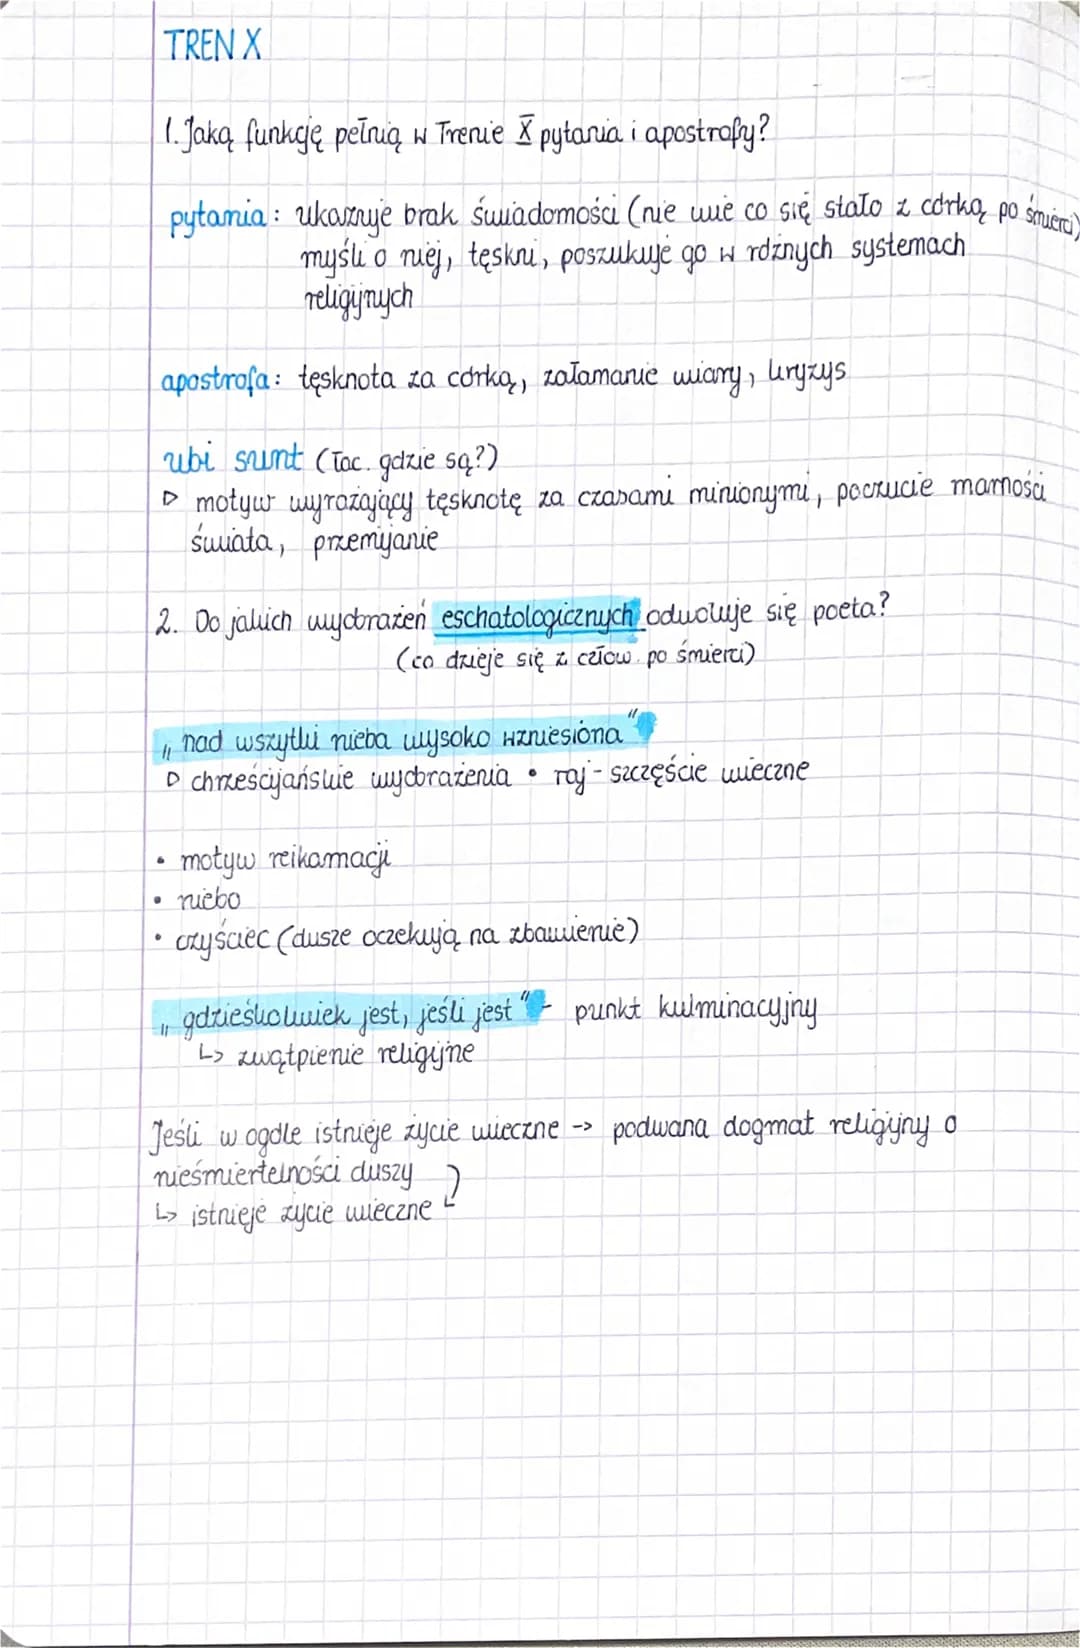 TREN X
1. Jaką funkcję pełnią w Trenie X pytania i apostrofy?
pytania: ukazuje brak świadomości (nie wie co się stało z córką po śmierci)
myśli o niej, tęskni, poszukuje go w różnych systemach
religijnych
apostrofa: tęsknota za córką, załamanie wiary, kryzys
ubi sunt (łac. gdzie są?)
▷ motyw wyrażający tęsknotę za czasami minionymi, poczucie marności
świata, przemijanie
2. Do jakich wyobrażeń eschatologicznych odwołuje się poeta?
(co dzieje się z człow. po śmierci)
„nad wszytki nieba wysoko wzniesiona"
▷ chrześcijańskie wyobrażenia • raj - szczęście wieczne
• motyw reikarnacji
• niebo
• czyściec (dusze oczekują na zbawienie)
„gdzieśkolwiek jest, jeśli jest" - punkt kulminacyjny
↳ zwątpienie religijne
Jeśli w ogóle istnieje życie wieczne -> podważa dogmat religijny o
nieśmiertelności duszy
↳ istnieje życie wieczne